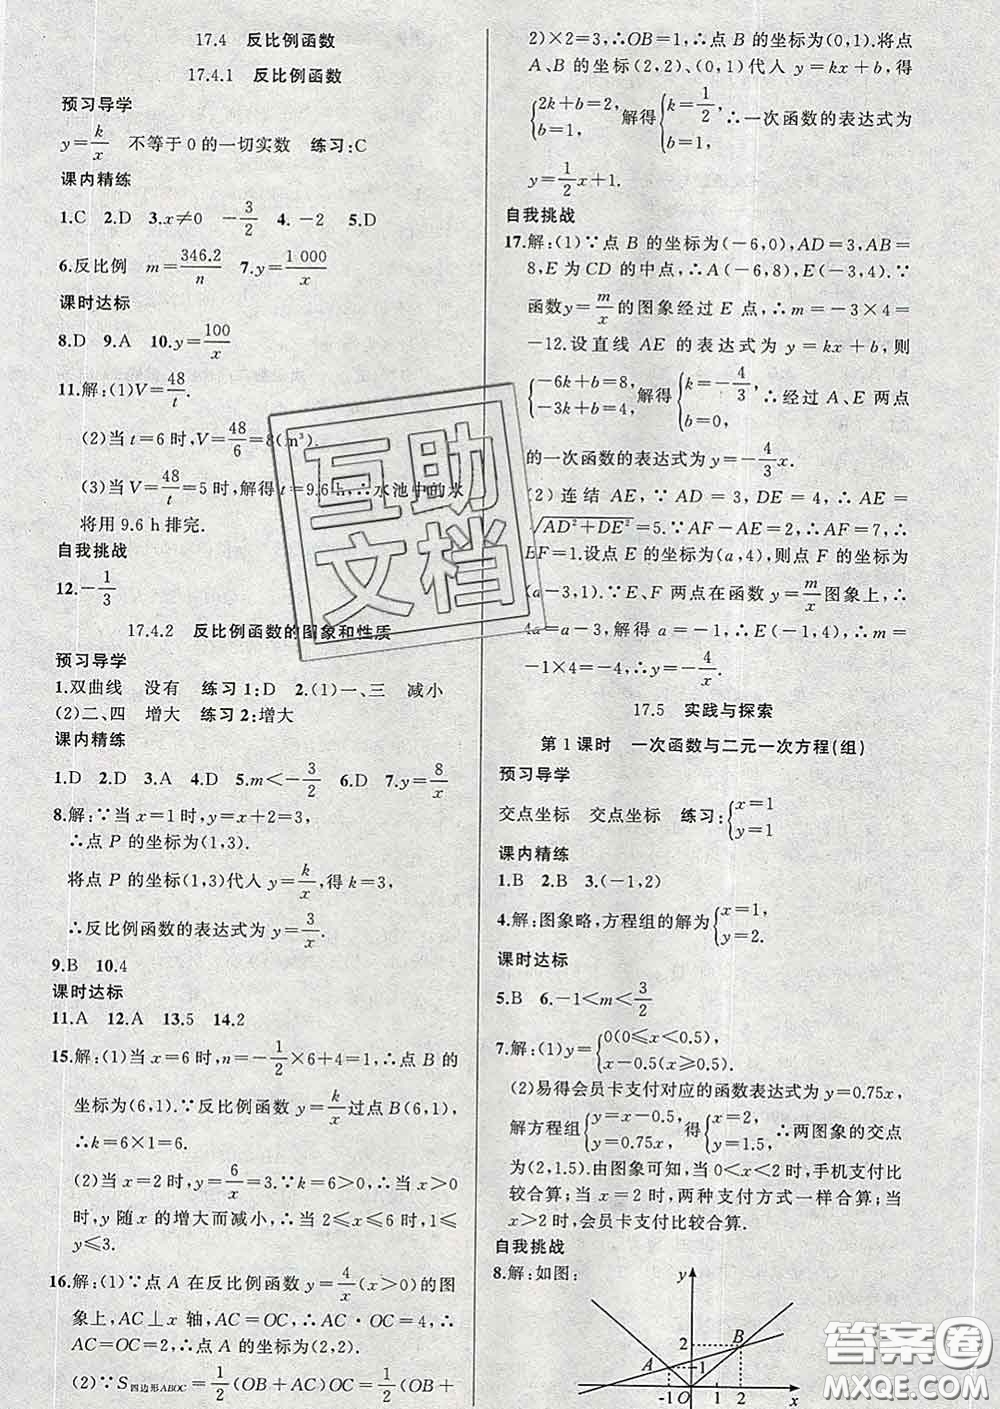 17.4 反比例函数
17.4.1 反比例函数
预习导学
y=k/x 不等于0的一切实数 练习:C
课内精练
1.C 2.D 3.x≠0 -3/2 4.-2 5.D
6.反比例 m=346.2/n 7.y=1 000/x
课时达标
8.D 9.A 10.y=100/x
11.解:(1)V=48/t.
(2)当t=6时,V=48/6=8(m³).
(3)当V=48/t=5时,解得t=9.6 h,∴水池中的水
将用9.6 h排完.
自我挑战
12.-1/3
17.4.2 反比例函数的图象和性质
预习导学
1.双曲线 没有 练习1:D 2.(1)一、三 减小
(2)二、四 增大 练习2:增大
课内精练
1.D 2.D 3.C 4.D 5.m<-3/2 6.D 7.y=8/x
8.解:∵当x=1时,y=x+2=3,
∴点P的坐标为(1,3).
将点P的坐标(1,3)代人y=k/x,得k=3,
∴反比例函数的表达式为y=3/x.
9.B 10.4
课时达标
11.A 12.A 13.5 14.2
15.解:(1)当x=6时,n=-1/2×6+4=1,∴点B的
坐标为(6,1).∵反比例函数y=k/x过点B(6,1),
∴k=6×1=6.
(2)当x=2时,y=6/x=3.∵k=6>0,∴当x>0
时,y随x的增大而减小,∴当2≤x≤6时,1≤
y≤3.
16.解:(1)∵点A在反比例函数y=4/x(x>0)的图
象上,AC⊥x轴,AC=OC,∴AC·OC=4,∴
AC=OC=2,∴点A的坐标为(2,2).
(2)∵S四边形ABOC=1/2(OB+AC)OC=1/2(OB+
2)×2=3,∴OB=1,∴点B的坐标为(0,1).将点
A、B的坐标(2,2)、(0,1)代人y=kx+b,得
{2k+b=2, b=1, 解得{k=1/2, b=1, ∴一次函数的表达式为
y=1/2x+1.
自我挑战
17.解:(1)∵点B的坐标为(-6,0),AD=3,AB=
8,E为CD的中点,∴A(-6,8),E(-3,4).∵
函数y=m/x的图象经过E点,∴m=-3×4=
-12.设直线AE的表达式为y=kx+b,则
{-6k+b=8, -3k+b=4, 解得{k=-4/3, b=0, ∴经过A、E两点
的一次函数的表达式为y=-4/3x.
(2)连结AE,∵AD=3,DE=4,∴AE=
√AD²+DE²=5.∵AF-AE=2,∴AF=7,∴
BF=1.设点E的坐标为(a,4),则点F的坐标为
(a-3,1).∵E、F两点在函数y=m/x图象上,∴
4a=a-3,解得a=-1,∴E(-1,4),∴m=
-1×4=-4,∴y=-4/x.
17.5 实践与探索
第1课时 一次函数与二元一次方程(组)
预习导学
交点坐标 交点坐标 练习:{x=1 y=1
课内精练
1.B 2.B 3.(-1,2)
4.解:图象略,方程组的解为{x=1, y=2.
课时达标
5.B 6.-1<m<3/2
7.解:(1)y={0(0≤x<0.5), x-0.5(x≥0.5).
(2)易得会员卡支付对应的函数表达式为y=0.75x,
解方程组{y=x-0.5, y=0.75x, 得{x=2, y=1.5, ∴两图象的交点
为(2,1.5).由图象可知,当0<x<2时,手机支付比
较合算;当x=2时,两种支付方式一样合算;当
x>2时,会员卡支付比较合算.
自我挑战
8.解:如图:
y
2
B
A
1
-1 O 1 2 x
互助
文档
答案圈
MXQE.COM